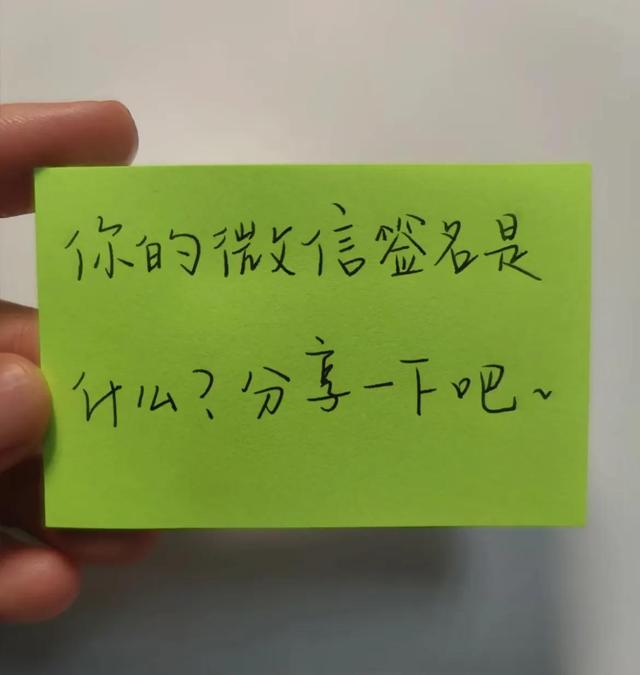 你的微信签名是
什么?分享一下吧~